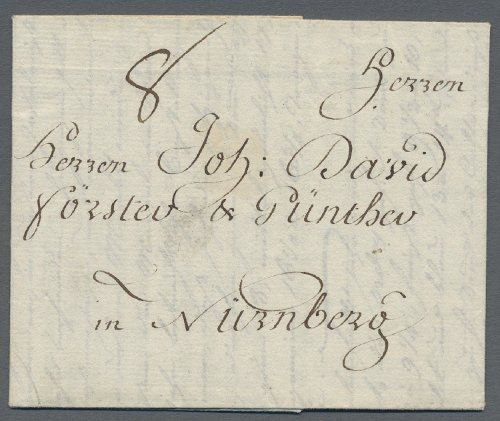 8
Herren
Herren Joh: David
Förster & Günther
in Nürnberg